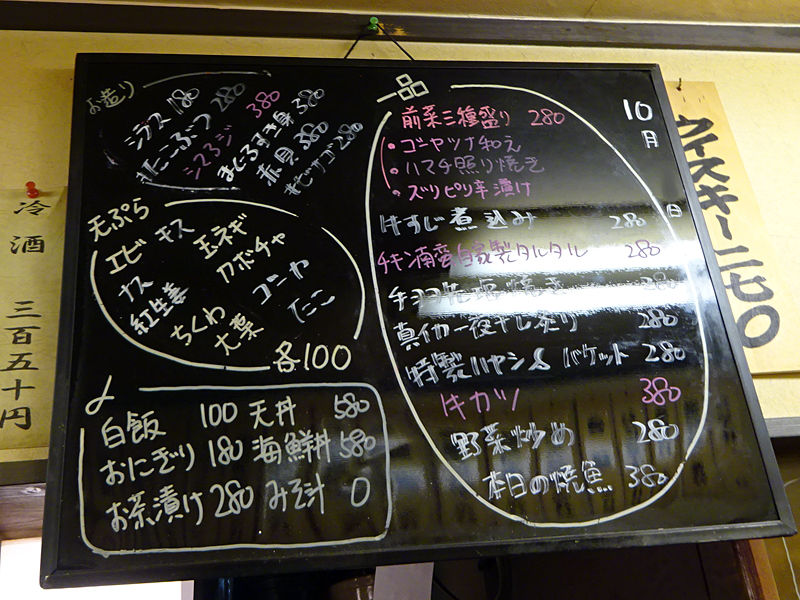 お造り
シラス 180
たこぶつ 280
シマアジ 380
まぐろすき身 380
赤貝 380
エビ
キス
天ぷら
玉ネギ
カボチャ
ナス
紅生姜
ゴーヤ
ちくわ
大葉
たこ
各100
〆
白飯 100 天丼 580
おにぎり 180 海鮮丼 580
お茶漬け 280 みそ汁 0
一品
10月 日
前菜三種盛り 280
・ゴーヤツナ和え
・ハマチ照り焼き
・ズリピリ辛漬け
牛すじ煮込み 280
チキン南蛮自家製タルタル 280
280
真イカ一夜干し炙り 280
特製ハヤシ& バケット 280
牛カツ 380
野菜炒め 280
本日の焼魚 380
ウィスキー二七〇
冷酒 三百五十円